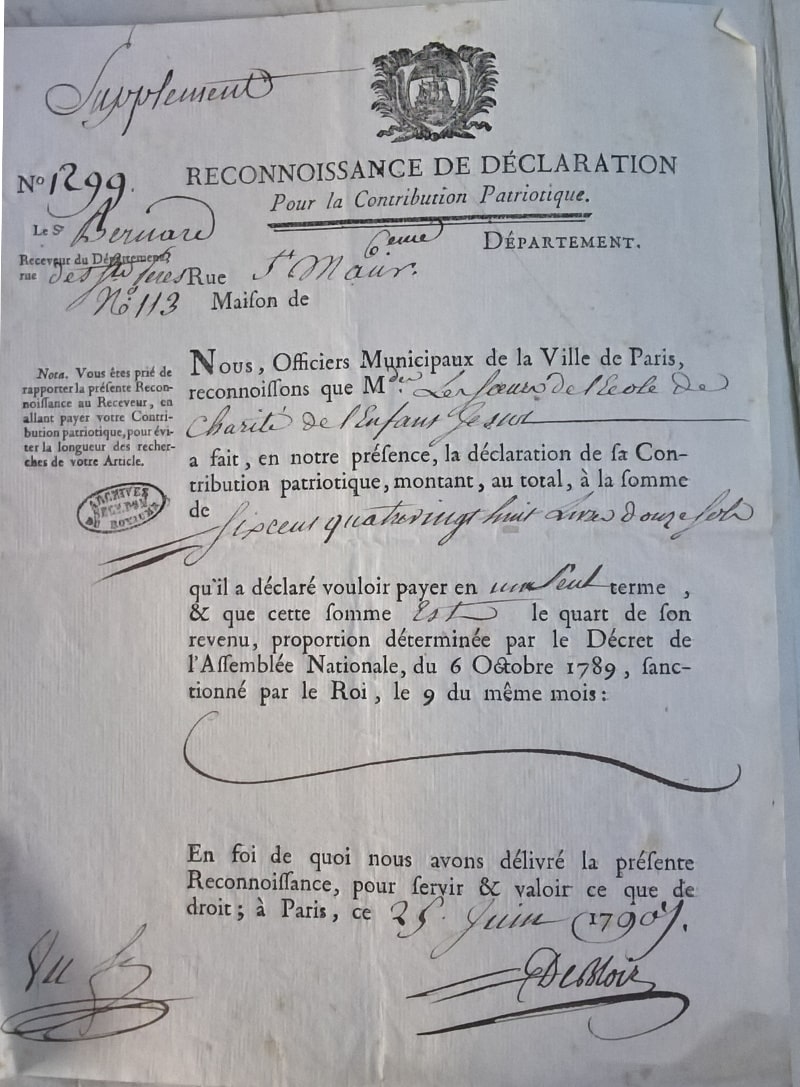 Supplement
No 1299.
RECONNOISSANCE DE DÉCLARATION
Pour la Contribution Patriotique.
Le Sr Bernard
6eme DÉPARTEMENT.
Receveur du Département
rue des Sts peres Rue St Maur.
No 113 Maiſon de
Nota. Vous êtes prié de
rapporter la préſente Recon-
noiſſance au Receveur, en
allant payer votre Contri-
bution patriotique, pour évi-
ter la longueur des recher-
ches de votre Article.
ARCHIVES
Nous, Officiers Municipaux de la Ville de Paris,
reconnoiſſons que M. Les Sœurs de l'Ecole de
Charité de l'Enfant Jesus
a fait, en notre préſence, la déclaration de ſa Con-
tribution patriotique, montant, au total, à la ſomme
de Six cent quatre vingt huit Livres douze sols
qu'il a déclaré vouloir payer en un Seul terme ,
& que cette ſomme Est le quart de ſon
revenu, proportion déterminée par le Décret de
l'Aſſemblée Nationale, du 6 Octobre 1789, ſanc-
tionné par le Roi, le 9 du même mois :
En foi de quoi nous avons délivré la préſente
Reconnoiſſance, pour ſervir & valoir ce que de
droit ; à Paris, ce 25 Juin 1790.
Vu